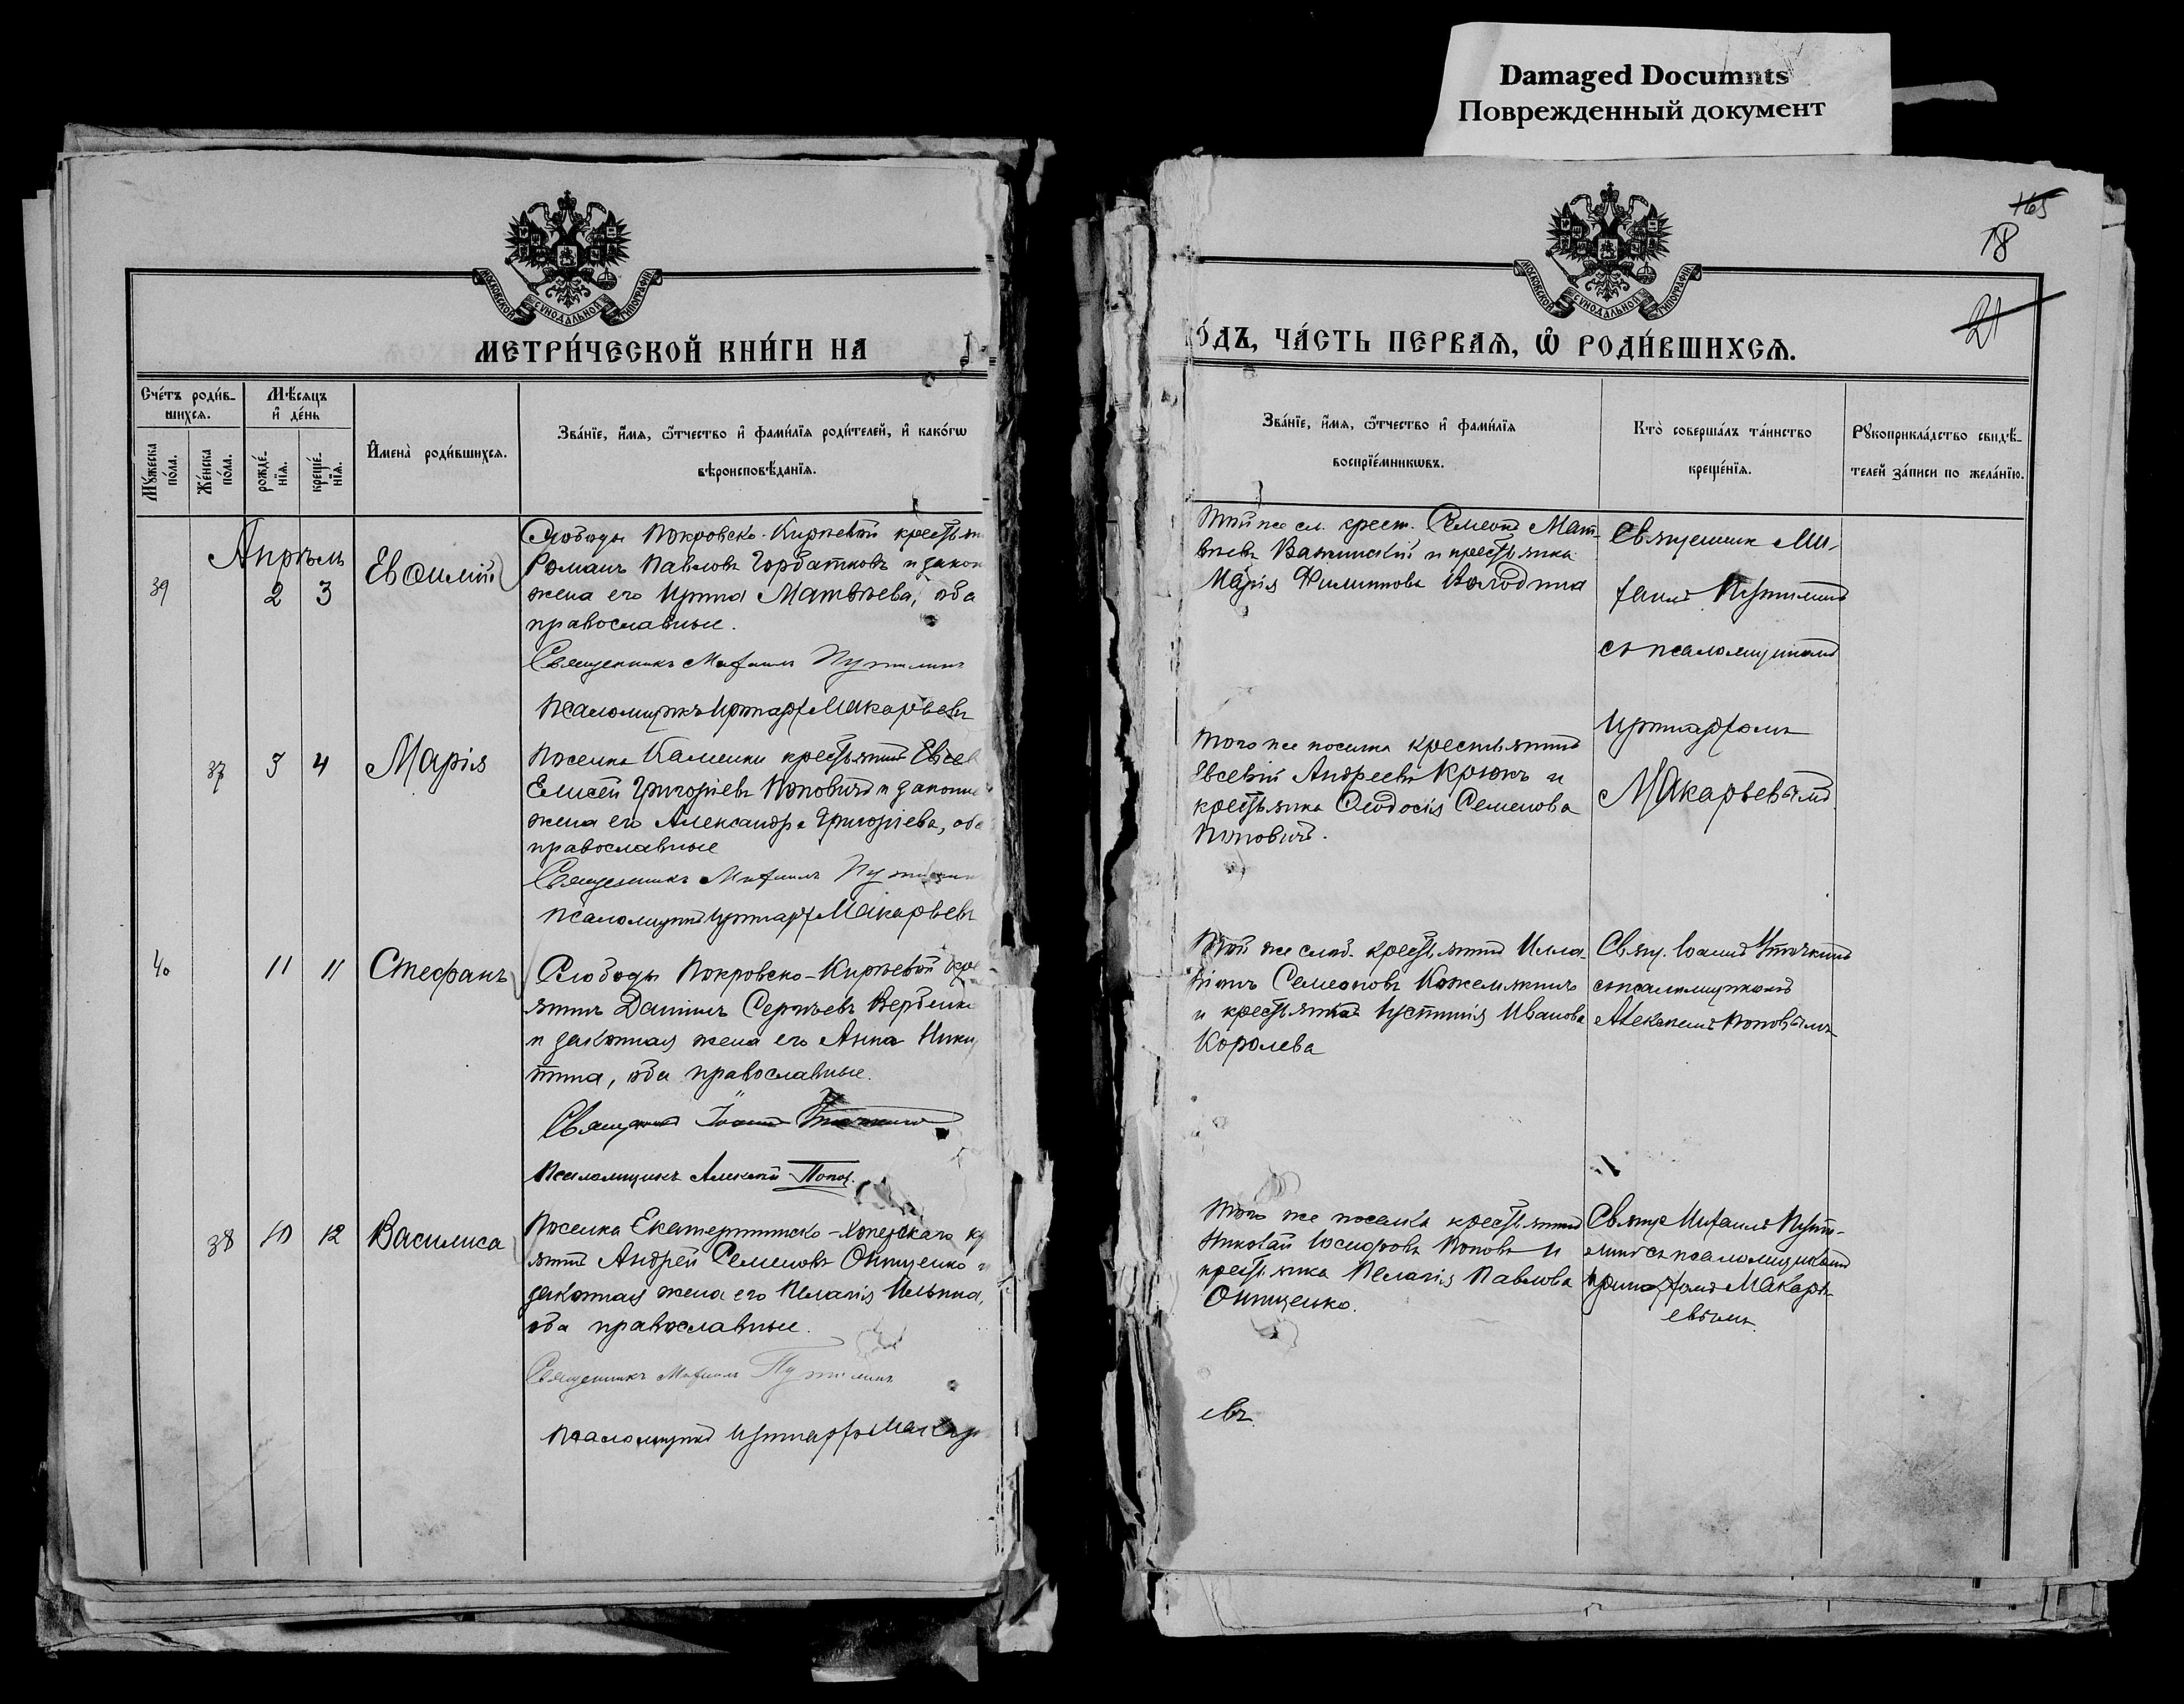 Damaged Documnts
Поврежденный документ
165
18
21
МОСКОВСКОЙ СѴНОДАЛЬНОЙ ТИПОГРАФІИ
МЕТРИ́ЧЕСКОЙ КНИ́ГИ НА
Сче́тъ роди́в-
шихсѧ.
Мѣ́сѧцъ
и҆ де́нь
Мꙋ́жеска
по́ла.
Же́нска
по́ла.
рожде́-
нїѧ.
креще́-
нїѧ.
И҆мена̀ роди́вшихсѧ.
Зва́нїе, и҆́мѧ, ѻ҆́тчество и҆ фами́лїѧ роди́телей, и҆ како́гѡ
вѣроисповѣ́данїѧ.
Апрѣль
39
2 3
Евѳимій
Слободы Покровско-Киріевой крестьян
Романъ Павловъ Горбатковъ и закон
жена его Ирина Матвѣева, оба
православные.
Священникъ Михаилъ Путилинъ
Псаломщикъ Иринархъ Макарьевъ
37 3 4
Марія
Поселка Каменки крестьянинъ
Елисей Григорьевъ Поповичъ и законн
жена его Александра Григорьева, оба
православные
Священникъ Михаилъ Путилин
Псаломщикъ Иринархъ Макарьевъ
40 11 11
Стефанъ
Слободы Покровско-Киріевой кре
янинъ Даніилъ Сергѣевъ Вербенко
и законная жена его Анна Ники
тина, оба православные.
Священникъ Іоаннъ
Псаломщикъ Алексѣй Попов.
38 10 12
Василиса
Поселка Екатерининско-Хоперскаго кр
янинъ Андрей Семеновъ Онищенко и
законная жена его Пелагія Ильина,
оба православные.
Священникъ Михаилъ Путилинъ
Псаломщикъ Иринархъ Макарь
О́ДЪ, ЧА́СТЬ ПЕ́РВАѦ, Ѽ РОДИ́ВШИХСѦ.
МОСКОВСКОЙ СѴНОДАЛЬНОЙ ТИПОГРАФІИ
Зва́нїе, и҆́мѧ, ѻ҆́тчество и҆ фами́лїѧ
воспрїе́мникѡвъ.
Кто̀ соверша́лъ та́инство
креще́нїѧ.
Рꙋкоприкла́дство свидѣ́-
телей за́писи по жела́нїю.
Той же сл. крест. Симеонъ Мат-
вѣевъ и крестьянка
Марія Филиппова Володина
Священник Ми-
хаилъ Путилинъ
съ псаломщикомъ
Иринархомъ
Макарьевымъ
Того же поселка крестьянинъ
Евсевій Андреевъ Крюкъ и
крестьянка Ѳеодосія Семенова
Поповичъ.
Той же слоб. крестьянинъ Илла-
ріонъ Семеновъ Кожемякинъ
и крестьянка Іустинія Иванова
Королева
Свящ. Іоаннъ
съ псаломщикомъ
Алексѣемъ Поповымъ
Того же поселка крестьянинъ
Николай Іосифовъ Поповъ и
крестьянка Пелагія Павлова
Онищенко.
Свящ. Михаилъ Пути-
линъ съ псаломщикомъ
Иринархомъ Макарь-
евымъ.
евъ.